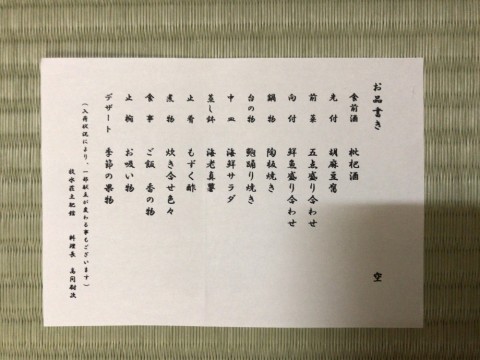 お品書き 空
食前酒 枇杷酒
先付 胡麻豆腐
前菜 五点盛り合わせ
向付 鮮魚盛り合わせ
鍋物 陶板焼き
台の物 鮑踊り焼き
中皿 海鮮サラダ
蒸し鉢 海老真薯
止肴 もずく酢
煮物 炊き合せ色々
食事 ご飯 香の物
止椀 お吸い物
デザート 季節の果物
(入荷状況により、一部献立が変わる事もございます)
料理長